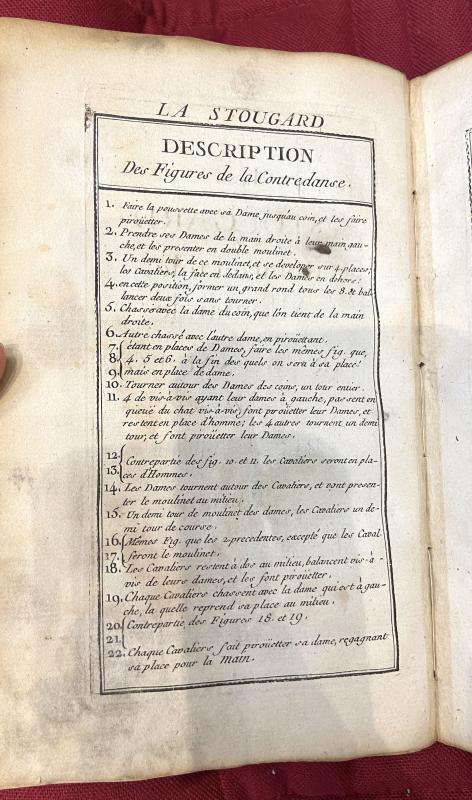 LA STOUGARD
DESCRIPTION
Des Figures de la Contredanse.
1. Faire la poussette avec sa Dame jusqu'au coin, et les faire
piroüetter.
2. Prendre ses Dames de la main droite à leur main gau-
che, et les presenter en double moulinet.
3. Un demi tour de ce moulinet, et se developer sur 4. places;
les Cavaliers, la face en dedans, et les Dames en dehors:
4. en cette position, former un grand rond tous les 8. et bal-
lancer deux fois sans tourner.
5. Chasser avec la dame du coin, que l'on tient de la main
droite.
6. Autre chassé avec l'autre dame, en piroüettant.
7. étant en places de Dames, faire les mêmes fig. que,
8. 4, 5 et 6. à la fin des quels on sera à sa place:
9. mais en place de dame.
10. Tourner autour des Dames des coins, un tour entier.
11. 4 de vis-à-vis ayant leur dames à gauche, passent en
queüe du chat vis-à-vis, font piroüetter leur Dames, et
restent en place d'homme; les 4 autres tournent un demi
tour, et font piroüetter leur Dames.
12. Contrepartie des fig. 10. et 11. les Cavaliers seront en pla-
13. ces d'Hommes.
14. Les Dames tournent autour des Cavaliers, et vont presen-
ter le moulinet au milieu.
15. Un demi tour de moulinet des dames, les Cavaliers un de-
mi tour de course.
16. Mêmes Fig. que les 2. precedentes, excepté que les Caval.
17. feront le moulinet.
18. Les Cavaliers restent à dos au milieu, balancent vis-à-
vis de leurs dames, et les font piroüetter.
19. Chaque Cavaliers chassent avec la dame qui est à gau-
che, la quelle reprend sa place au milieu.
20. Contrepartie des Figures 18. et 19.
21.
22. Chaque Cavaliers fait piroüetter sa dame, regagnant
sa place pour la main.